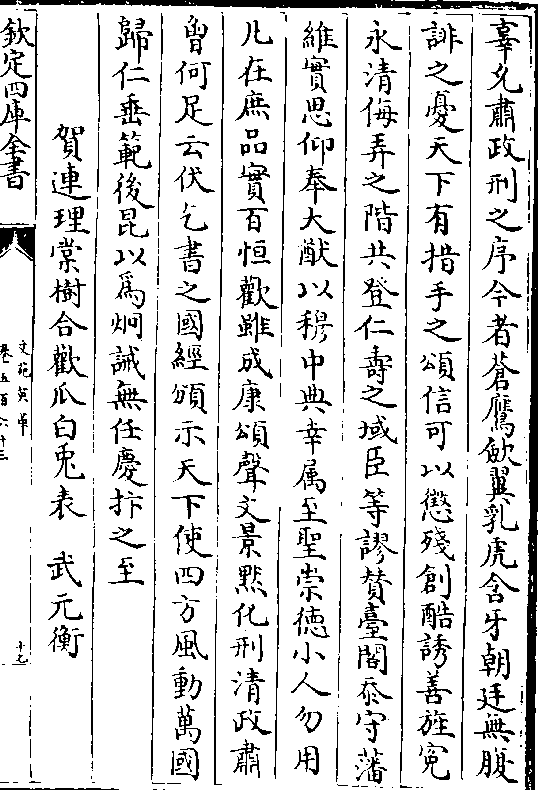 辜允肅政刑之序今者蒼鷹歛翼乳虎含牙朝廷無腹
誹之憂天下有措手之頌信可以懲殘創酷誘善旌寃
永清侮弄之階共登仁壽之域臣等謬賛臺閣忝守藩
維實思仰奉大猷以穆中典幸属至聖崇徳小人勿用
凡在庶品實百恒歡雖成康頌聲文景黙化刑清政肅
曾何足云伏乞書之國經頒示天下使四方風動萬國
歸仁垂範後昆以爲炯誡無任慶抃之至
賀連理棠樹合歡瓜白兎表　武元衡
欽定四庫全書
文苑英華
卷五百六十三
十七